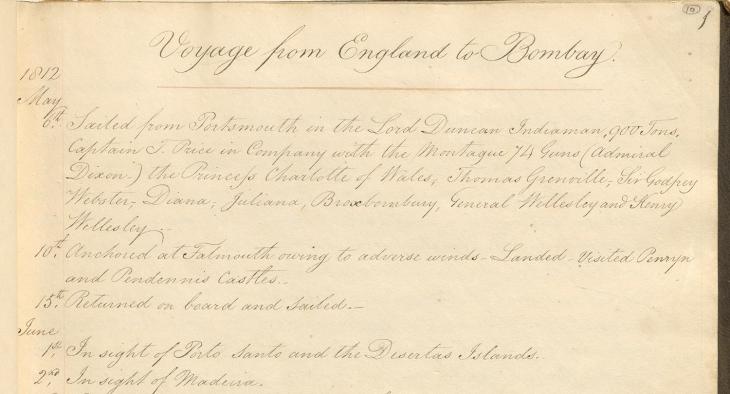 (10)
1
Voyage from England to Bombay.
1812
May
6th. Sailed from Portsmouth in the Lord Duncan Indiaman, 900 Tons.
Captain T. Price in Company with the Montague 74 Guns (Admiral
Dixon.) the Princess Charlotte of Wales, Thomas Grenville, Sir Godfrey
Webster, Diana, Juliana, Broxbornbury, General Wellesley and Henry
Wellesley.
10th. Anchored at Falmouth owing to adverse winds - Landed - Visited Penryn
and Pendennis Castles.
15th. Returned on board and sailed.-
June
1st. In sight of Porto Santo and the Desertas Islands.
2nd. In sight of Madeira.